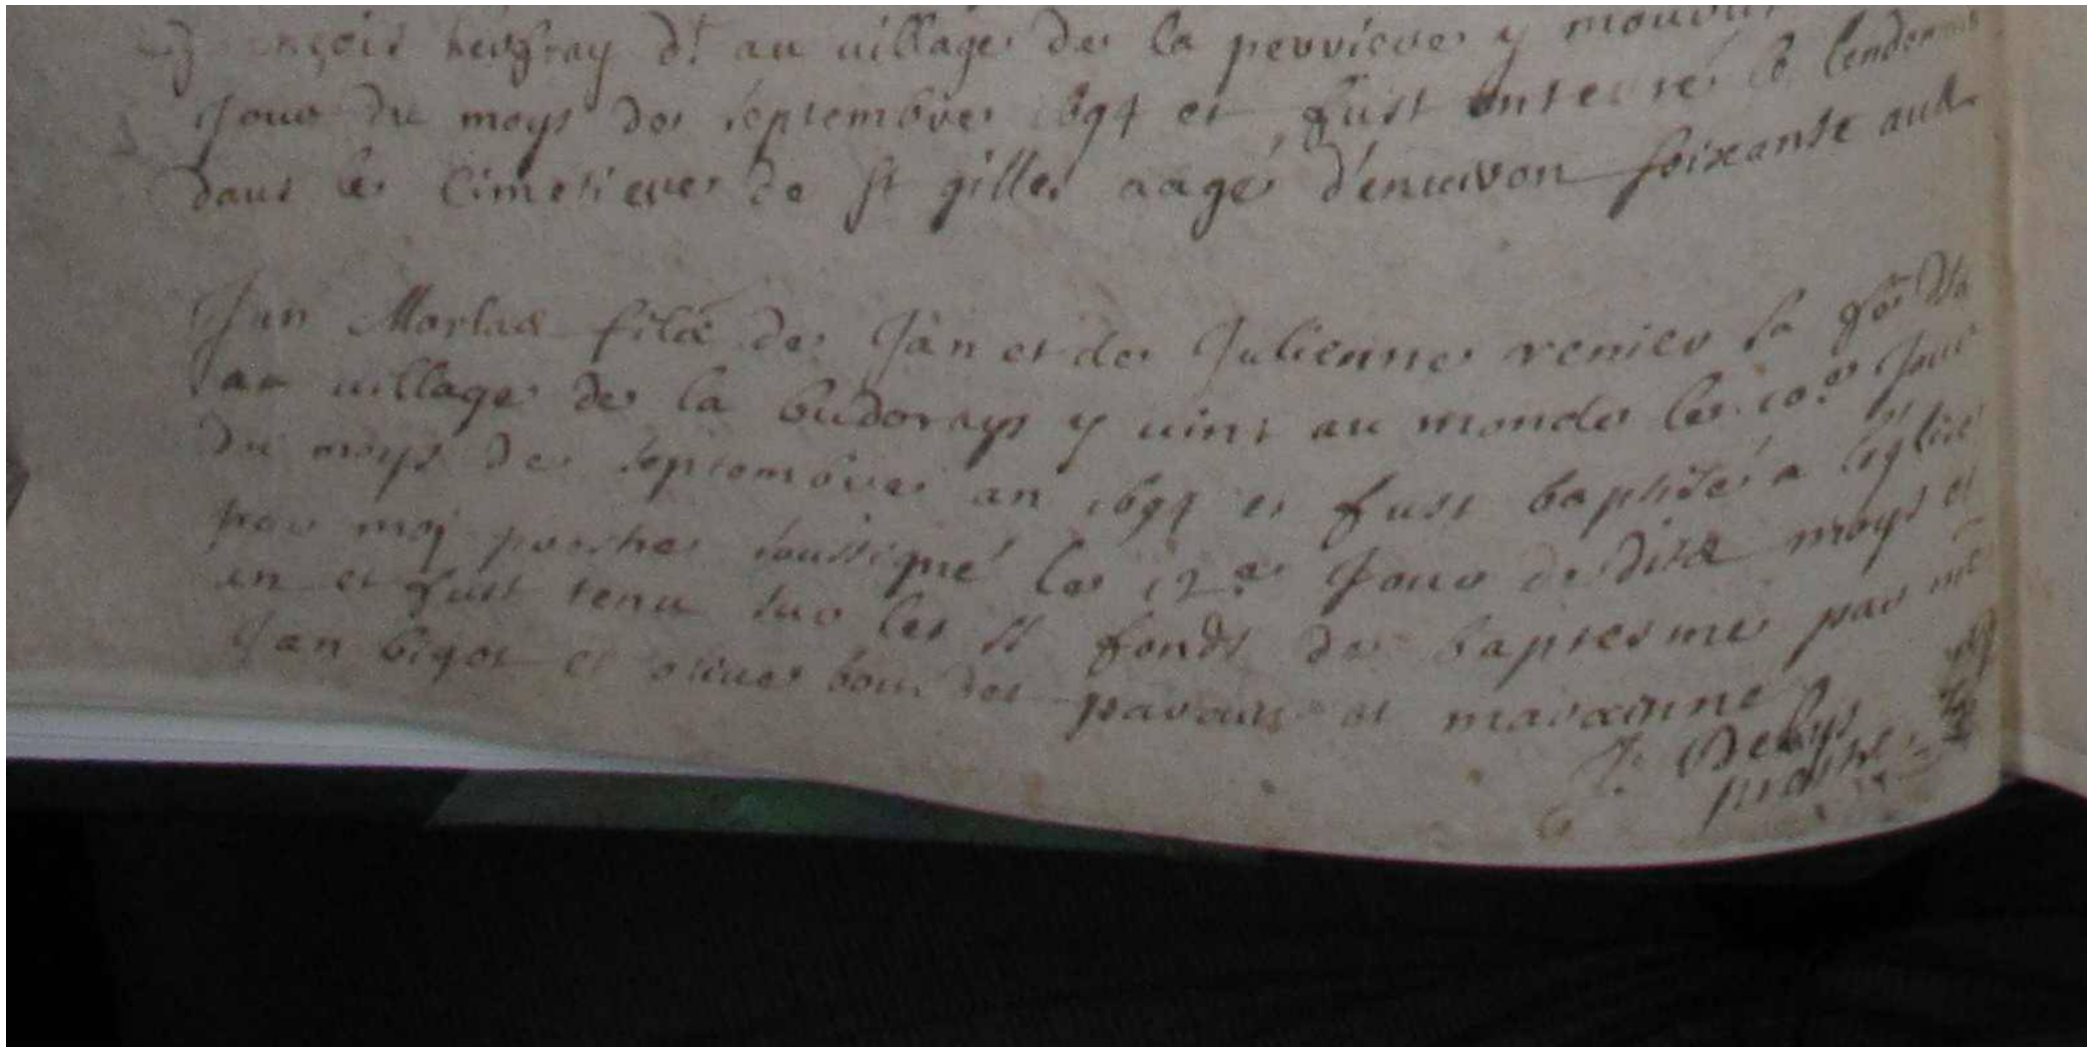 nçois heusray dt au uillage de la perriere y mourut
Jour du moys de septembre 1694 et fust enterré le lendem
dans le Cimetiere de st gilles aagé d'enuiron soixante ans
Jan Morlas fils de Jan et de Julienne renier sa fe dts
au uillage de la budorays y uint au monde le 10e Jour
du moys de septembre an 1694 et fust baptisé a l'église
par moy prestre soussigné le 12e Jour de dits moys et
an et fust tenu sur les st fonds de baptesme par
Jan bigot et parains et maraine
J. Debys
prestre